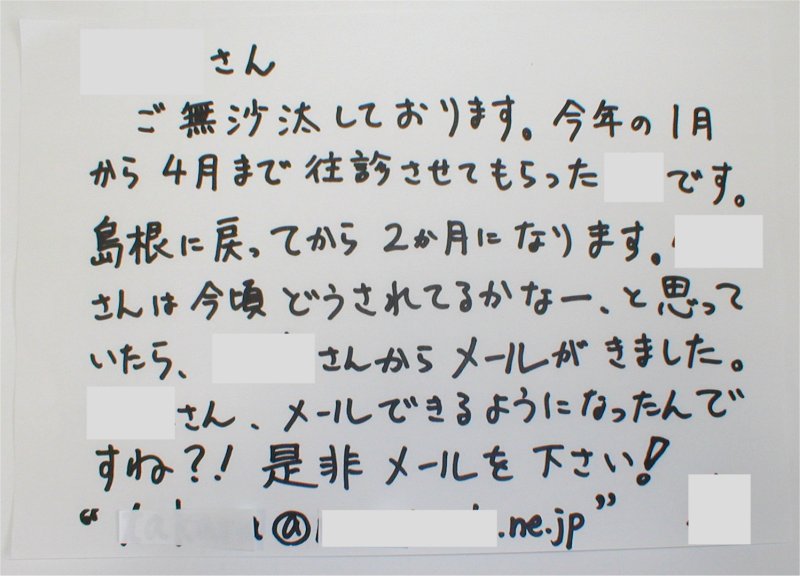 さん
ご無沙汰しております。今年の1月
から4月まで往診させてもらった です。
島根に戻ってから2か月になります。
さんは今頃どうされてるかなー、と思って
いたら、 さんからメールがきました。
さん、メールできるようになったんで
すね?! 是非メールを下さい!
“ @ .ne.jp”